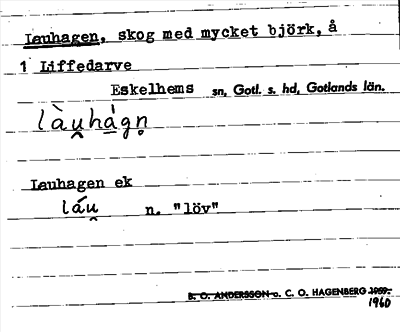 Lauhagen, skog med mycket björk, å
1 Liffedarve
Eskelhems sn, Gotl. s. hd, Gotlands län.
làu̯hágn̥
Lauhagen ek
láu̯ n. "löv"
B. O. ANDERSSON o. C. O. HAGENBERG 1959.
1960